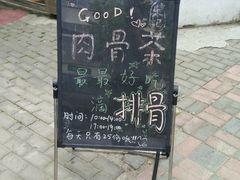 GOOD!
肉骨茶
最最好吃
滴排骨
时间:10:00-14:00
17:00-19:00
每天只有25份哦!!